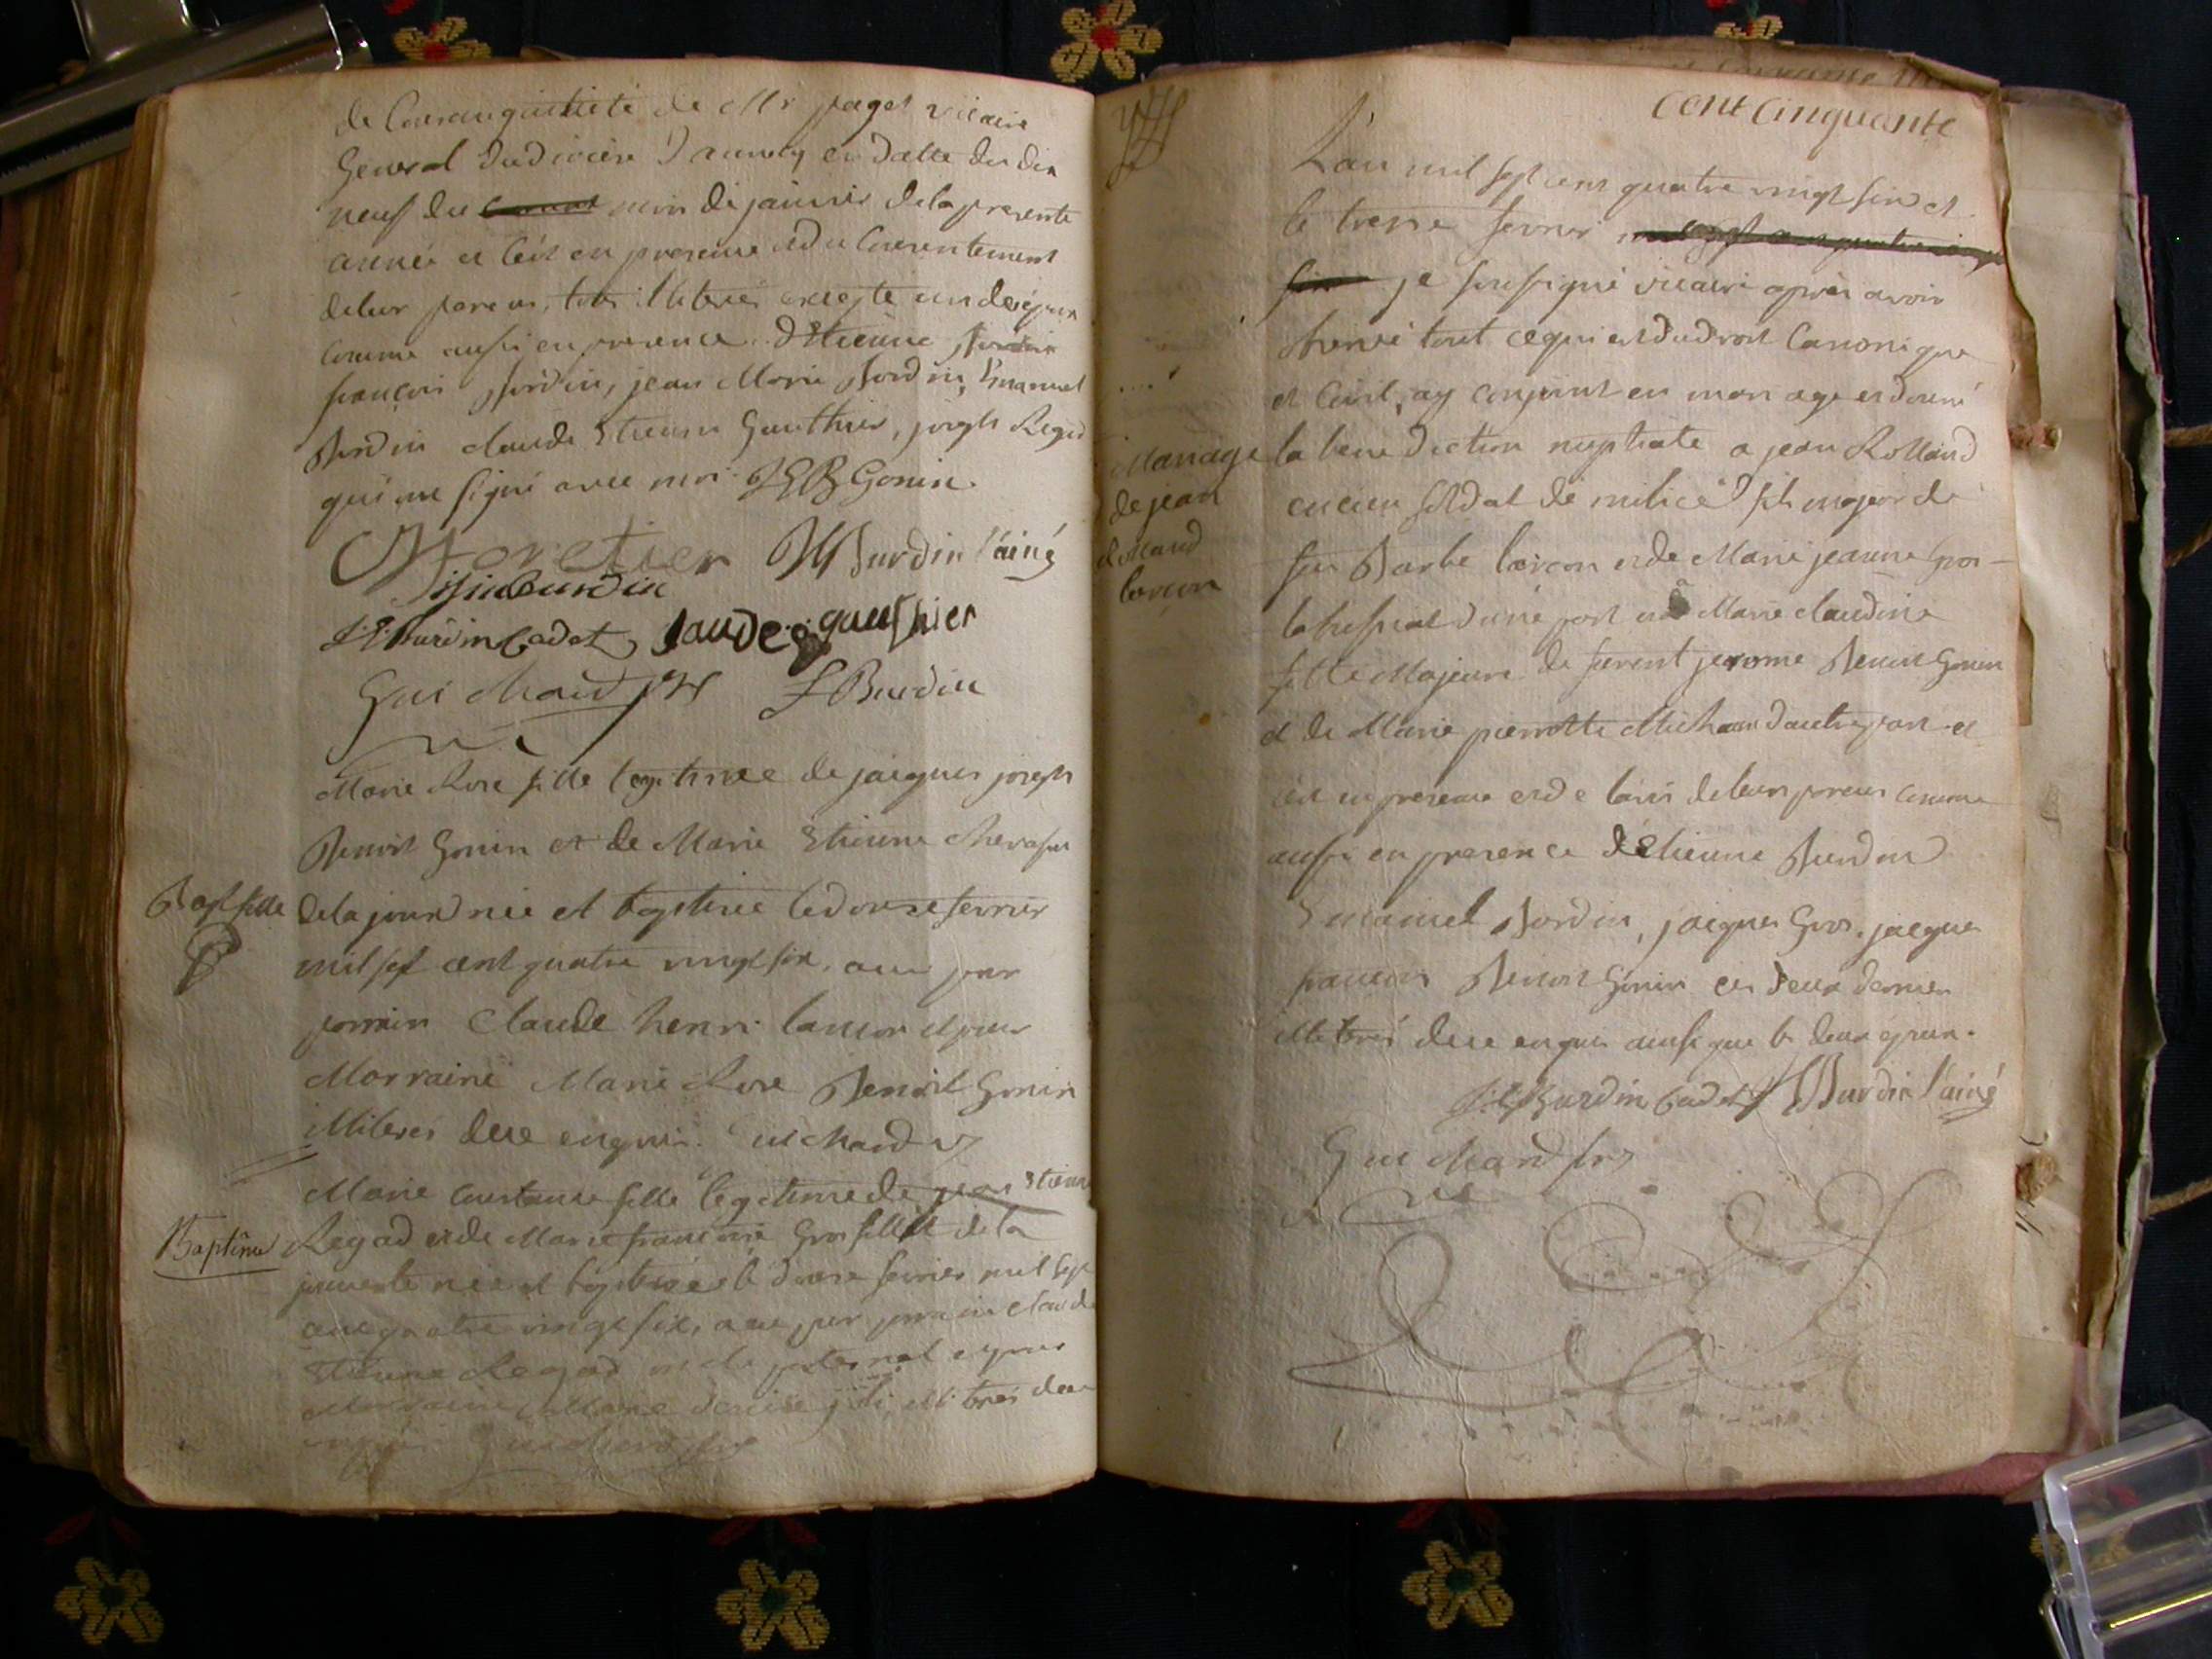 de Consanguinité de Mr paget vicaire
General du diocèse d'annecy en datte du dix
neuf du mois de janvier de la presente
année et ce en presence et du Consentement
de leur parens, tous illiterés excepté un des époux
comme aussi en presence d'Etienne Burdin
françois Burdin, jean Marie Burdin, Emanuel
Burdin claude Etienne Gauthier, joseph Regad
qui ont signé avec moi. JEB Gonin.
Burdin l'ainé
Burdin
Burdin Cadet, Claude gauthier
Guichard ptr f Burdin
Marie Rose fille legitimee de jacques joseph
Benoit Gonin et de Marie Etienne
Bapt fille
de la joux née et baptisée le douze fevrier
mil sept cent quatre vingt six, a eu pour
parrain Claude henri lancon et pour
Marraine Marie Rose Benoit Gonin
illiterés de ce enquis. Guichard
Marie Constance fille legitime de jean Etienne
Baptême
Regad et de Marie françoise Grosfillex de la
née et baptisée le douze fevrier mil sept
cent quatre vingt six, a eu pour parrain claude
Etienne Regad oncle paternel et pour
Marraine Marie illiterés de ce
enquis Guichard
cent cinquante
L'an mil sept cent quatre vingt six et
le treize fevrier
je soussigné vicaire après avoir
observé tout ce qui est du droit Canonique
et Civil, ay conjoint en mariage et donné
Mariage
de jean
Rolland
lancon
la benediction nuptiale a jean Rolland
ancien soldat de milice fils majeur de
feu Barbe lancon et de Marie jeanne Gros-
d'une part et a Marie claudine
fille Majeure de furent jerome Benoit Gonin
et de Marie pierrotte Michaud d'autre part et
ce en presence et de l'avis de leurs parens comme
aussi en presence d'etienne Burdin
Emanuel Burdin, jacques Gros, jacques
francois Benoit Gonin ces deux dernier
illiterés de ce enquis ainsi que les deux époux.
Burdin Cadet Burdin l'ainé
Guichard ptr